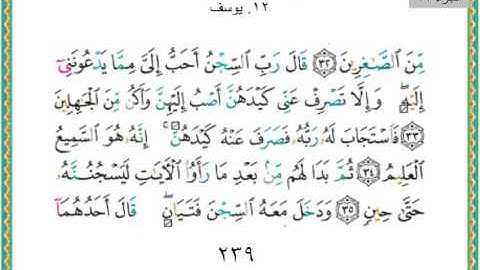 ١٢. يوسف
مِّنَ ٱلصَّٰغِرِينَ ﴿٣٢﴾ قَالَ رَبِّ ٱلسِّجْنُ أَحَبُّ إِلَىَّ مِمَّا يَدْعُونَنِىٓ
إِلَيْهِ ۖ وَإِلَّا تَصْرِفْ عَنِّى كَيْدَهُنَّ أَصْبُ إِلَيْهِنَّ وَأَكُن مِّنَ ٱلْجَٰهِلِينَ
﴿٣٣﴾ فَٱسْتَجَابَ لَهُۥ رَبُّهُۥ فَصَرَفَ عَنْهُ كَيْدَهُنَّ ۚ إِنَّهُۥ هُوَ ٱلسَّمِيعُ
ٱلْعَلِيمُ ﴿٣٤﴾ ثُمَّ بَدَا لَهُم مِّنۢ بَعْدِ مَا رَأَوُا۟ ٱلْءَايَٰتِ لَيَسْجُنُنَّهُۥ
حَتَّىٰ حِينٍ ﴿٣٥﴾ وَدَخَلَ مَعَهُ ٱلسِّجْنَ فَتَيَانِ ۖ قَالَ أَحَدُهُمَآ
٢٣٩